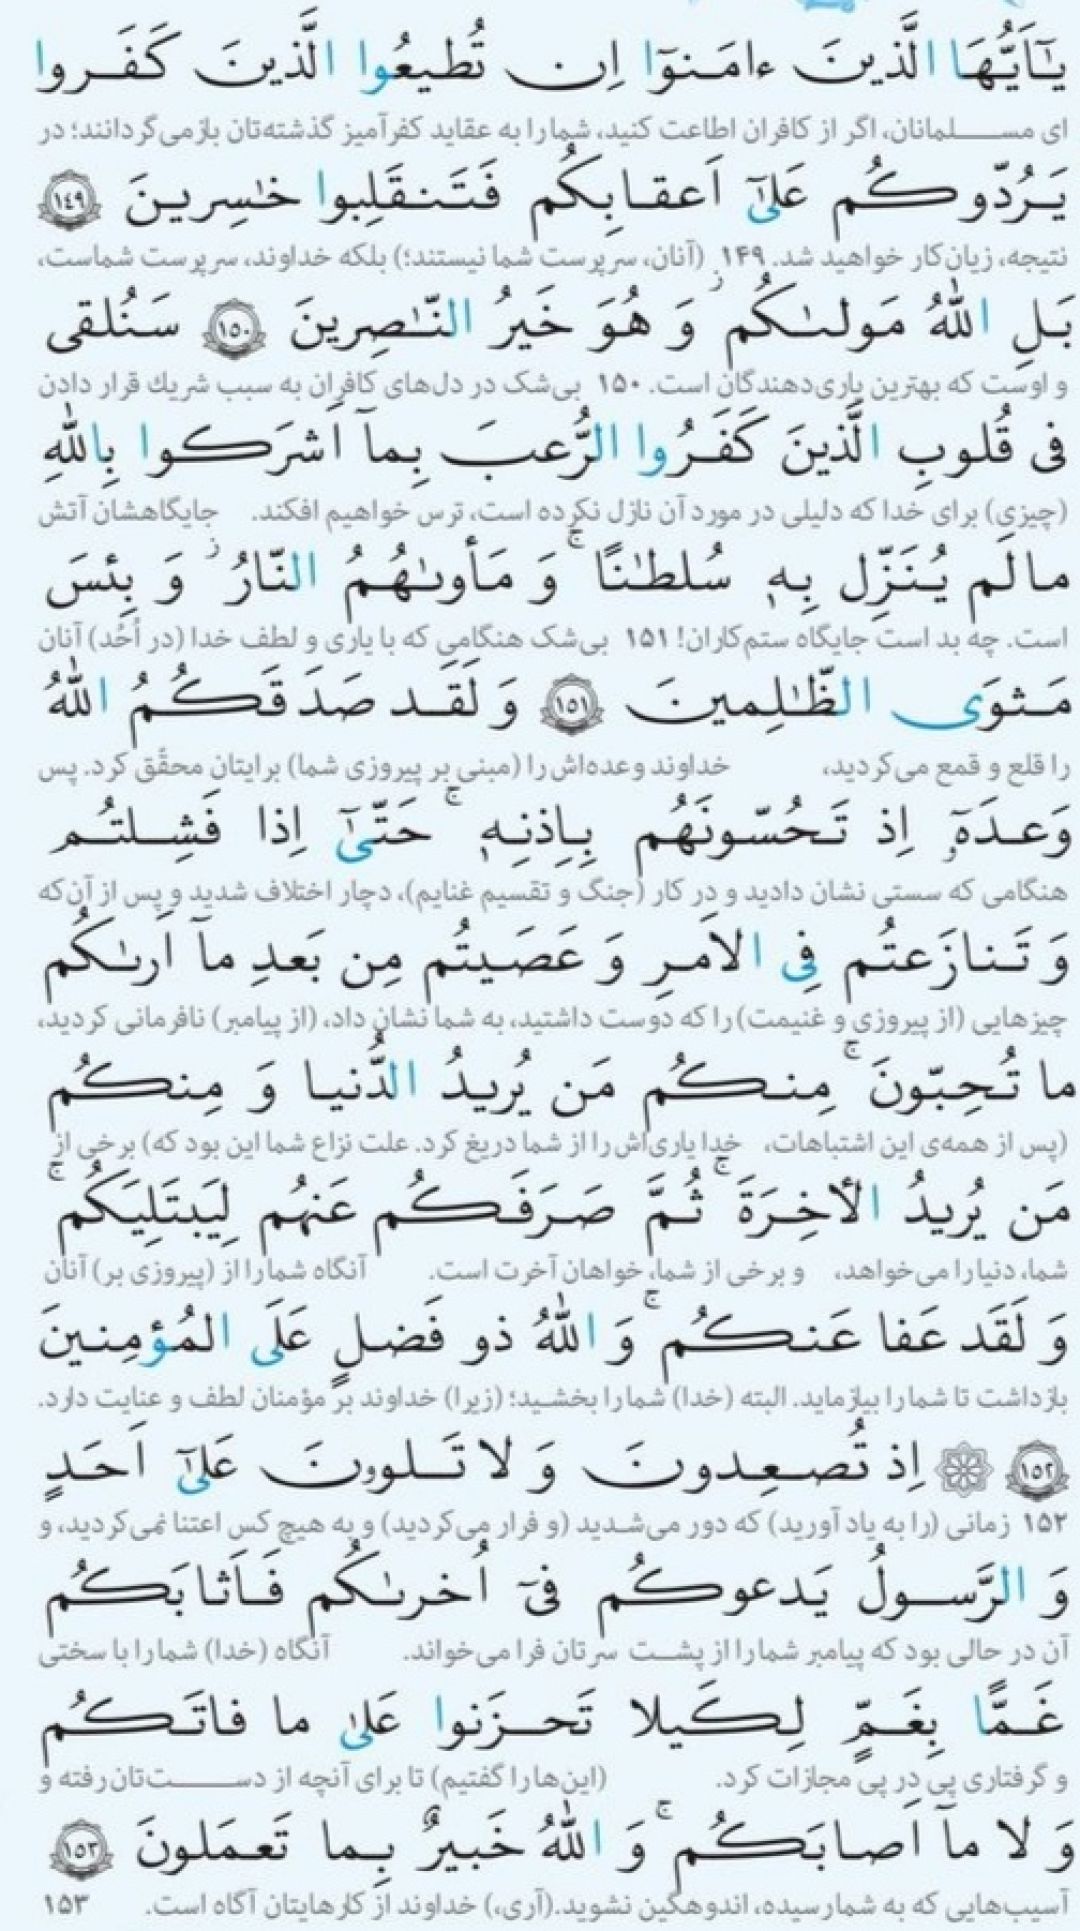 يٰٓاَيُّهَا الَّذينَ ءامَنوٓا اِن تُطيعُوا الَّذينَ كَفَروا
ای مسلمانان، اگر از کافران اطاعت کنید، شما را به عقاید کفرآمیز گذشته‌تان بازمی‌گردانند؛ در
يَرُدّوكُم عَلىٰٓ اَعقابِكُم فَتَنقَلِبوا خٰسِرينَ ﴿١٤٩﴾
نتیجه، زیان‌کار خواهید شد. ۱۴۹ (آنان، سرپرست شما نیستند؛) بلکه خداوند، سرپرست شماست،
بَلِ اللّٰهُ مَولىٰكُم ۖ وَ هُوَ خَيرُ النّٰصِرينَ ﴿١٥٠﴾ سَنُلقى
و اوست که بهترین یاری‌دهندگان است. ۱۵۰ بی‌شک در دل‌های کافران به سبب شریك قرار دادن
فى قُلوبِ الَّذينَ كَفَرُوا الرُّعبَ بِمآ اَشرَكوا بِاللّٰهِ
(چیزی) برای خدا که دلیلی در مورد آن نازل نکرده است، ترس خواهیم افکند. جایگاهشان آتش
ما لَم يُنَزِّل بِهٖ سُلطٰنًا ۚ وَ مَأوىٰهُمُ النّارُ ۚ وَ بِئسَ
است. چه بد است جایگاه ستم‌کاران! ۱۵۱ بی‌شک هنگامی که با یاری و لطف خدا (در اُحُد) آنان
مَثوَى الظّٰلِمينَ ﴿١٥١﴾ وَ لَقَد صَدَقَكُمُ اللّٰهُ
را قلع و قمع می‌کردید، خداوند وعده‌اش را (مبنی بر پیروزی شما) برایتان محقّق کرد. پس
وَعدَهٗٓ اِذ تَحُسّونَهُم بِاِذنِهٖ ۚ حَتّىٰٓ اِذا فَشِلتُم
هنگامی که سستی نشان دادید و در کار (جنگ و تقسیم غنایم)، دچار اختلاف شدید و پس از آن‌که
وَ تَنازَعتُم فِى الاَمرِ وَ عَصَيتُم مِن بَعدِ مآ اَرىٰكُم
چیزهایی (از پیروزی و غنیمت) را که دوست داشتید، به شما نشان داد، (از پیامبر) نافرمانی کردید،
ما تُحِبّونَ ۚ مِنكُم مَن يُريدُ الدُّنيا وَ مِنكُم
(پس از همه‌ی این اشتباهات، خدا یاری‌اش را از شما دریغ کرد. علت نزاع شما این بود که) برخی از
مَن يُريدُ الأٰخِرَةَ ۚ ثُمَّ صَرَفَكُم عَنهُم لِيَبتَلِيَكُم ۚ
شما، دنیا را می‌خواهد، و برخی از شما، خواهان آخرت است. آنگاه شما را از (پیروزی بر) آنان
وَ لَقَد عَفا عَنكُم ۚ وَ اللّٰهُ ذو فَضلٍ عَلَى المُؤمِنينَ
بازداشت تا شما را بیازماید. البته (خدا) شما را بخشید؛ (زیرا) خداوند بر مؤمنان لطف و عنایت دارد.
﴿١٥٢﴾ ۞ اِذ تُصعِدونَ وَ لا تَلوۥنَ عَلىٰٓ اَحَدٍ
۱۵۲ زمانی (را به یاد آورید) که دور می‌شدید (و فرار می‌کردید) و به هیچ کس اعتنا نمی‌کردید، و
وَ الرَّسولُ يَدعوكُم فىٓ اُخرىٰكُم فَاَثابَكُم
آن در حالی بود که پیامبر شما را از پشت سرتان فرا می‌خواند. آنگاه (خدا) شما را با سختی
غَمًّا بِغَمٍّ لِكَيلا تَحزَنوا عَلىٰ ما فاتَكُم
و گرفتاری پی در پی مجازات کرد. (این‌ها را گفتیم) تا برای آنچه از دست‌تان رفته و
وَ لا مآ اَصابَكُم ۚ وَ اللّٰهُ خَبيرٌ بِما تَعمَلونَ ﴿١٥٣﴾
آسیب‌هایی که به شما رسیده، اندوهگین نشوید. (آری،) خداوند از کارهایتان آگاه است. ۱۵۳